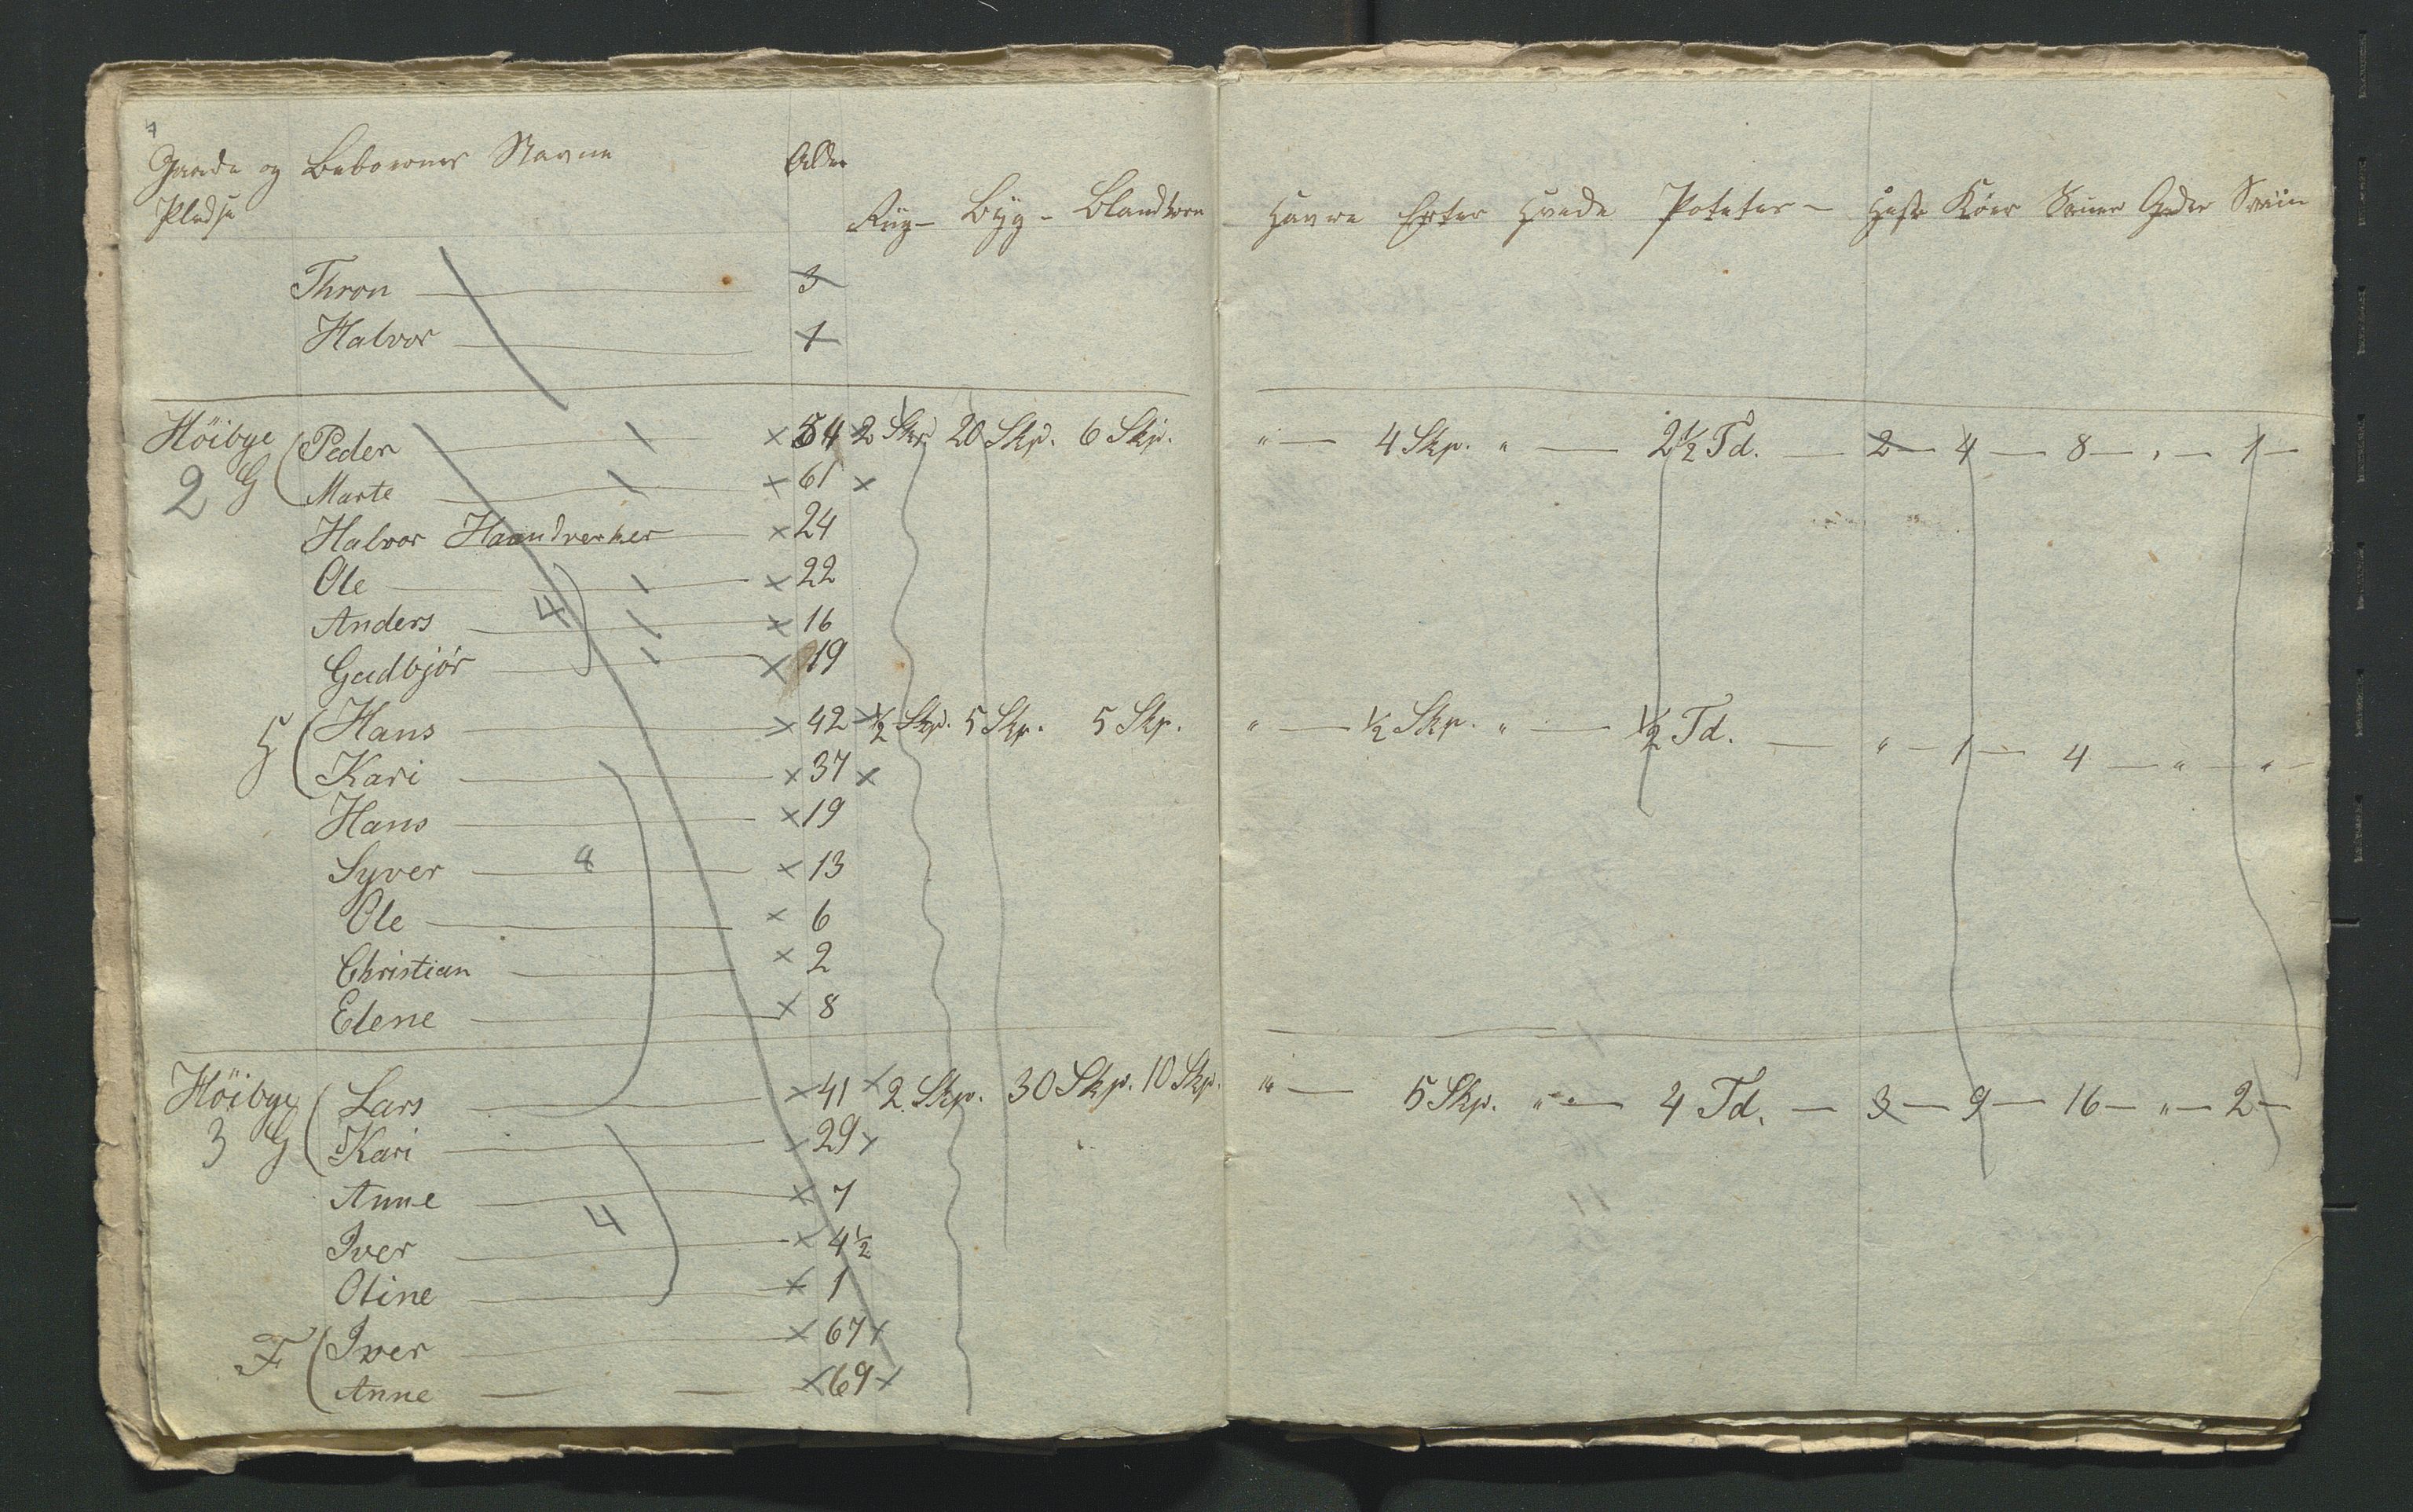 Gaarde og Beboernes Navne Alder
Pladse Rüg- Büg- Blandkorn Havre Erter Hvede Poteter- Heste Köer Souer Geder Sviin
Thron 3
Halvor 1
Höibye Peder 54 2 Skp. 20 Skp. 6 Skp. " 4 Skp. " 2½ Td. 2 4 8 " 1
2 G Marte 61
Halvor Haandverker 24
Ole 22
Anders 4 16
Gudbjör 19
G Hans 42 ½ Skp. 5 Skp. 5 Skp. " ½ Skp. " ½ Td. " 1 4 " "
Kari 37
Hans 19
Syver 4 13
Ole 6
Christian 2
Elene 8
Höibye Lars 41 2 Skp. 30 Skp. 10 Skp. " 5 Skp. " 4 Td. 3 9 16 " 2
3 G Kari 29
Anne 7
Iver 4 4½
Oline 1
F Iver 67
Anne 69